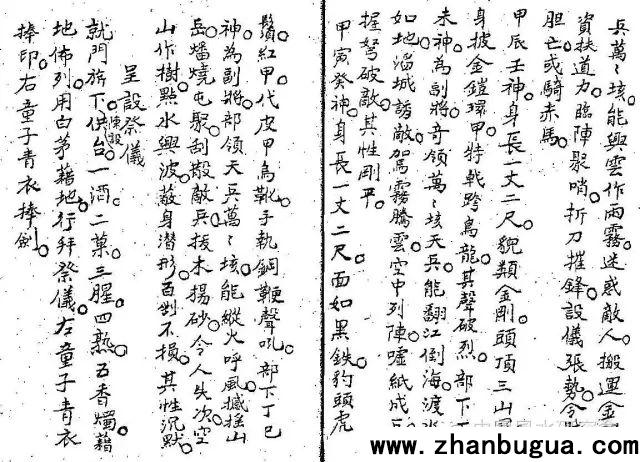 兵萬〻垓能興雲作雨霧迷惑敵人搬運金
資扶道力臨陣聚哨折刀摧鋒設儀張勢令
胆亡或騎赤馬
甲辰壬神身長一丈二尺貌類金剛頭頂三山
身披金鎧環甲持戟跨烏龍其聲破烈部下丁
未神為副將奇領萬〻垓天兵能翻江倒海渡水
如地滔城誘敵駕霧騰雲空中列陣噓紙成
握弩破敵其性剛平
甲寅癸神身長一丈二尺面如黑鉄豹頭虎
鬚紅甲代皮甲烏靴手執銅鞭聲吼部下丁巳
神為副將部領天兵萬〻垓能縱火呼風撼搖山
岳燔燒屯聚刮散敵兵拔木揚砂令人失次空
山作樹點水興波蔽身潛形百剉不損其性沉默
呈設祭儀
就門旂下供台陳設一酒二菓三腥四熟五香燭藉
地佈列用白茅藉地行拜祭儀左童子青衣
捧印右童子青衣捧劍
www.zhanbugua.com